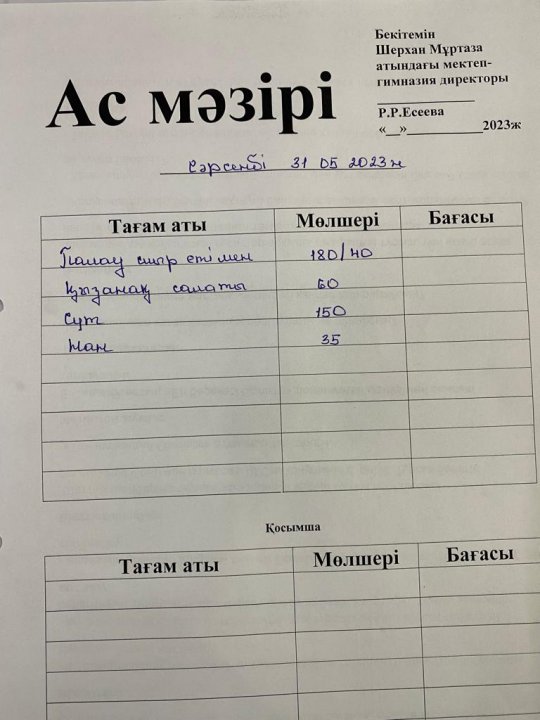 Бекітемін
Шерхан Мұртаза
атындағы мектеп-
гимназия директоры
______________
Р.Р.Есеева
«__»___________2023ж
Ас мәзірі
Сәрсенбі 31 05 2023ж
Тағам аты Мөлшері Бағасы
Палау сиыр етімен 180/40
Қызанақ салаты 60
Сүт 150
Нан 35
Қосымша
Тағам аты Мөлшері Бағасы